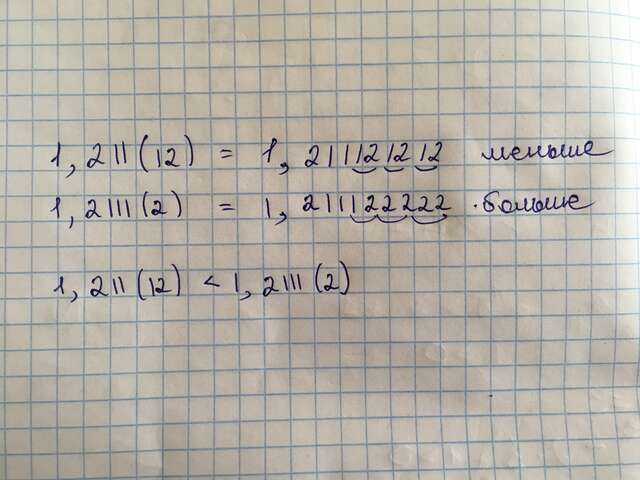 1,211(12) = 1,211121212 меньше
1,2111(2) = 1,211122222 . больше
1,211(12) < 1,2111(2)